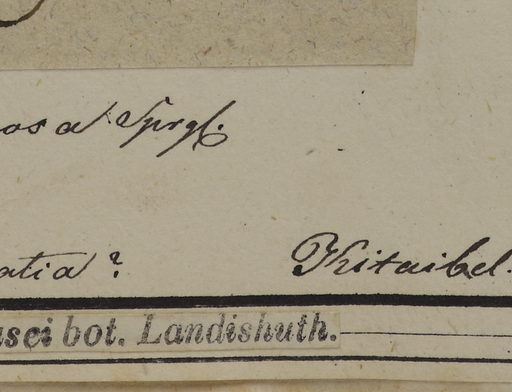 osa Sprgl.
atia? Kitaibel.
usei bot. Landishuth.